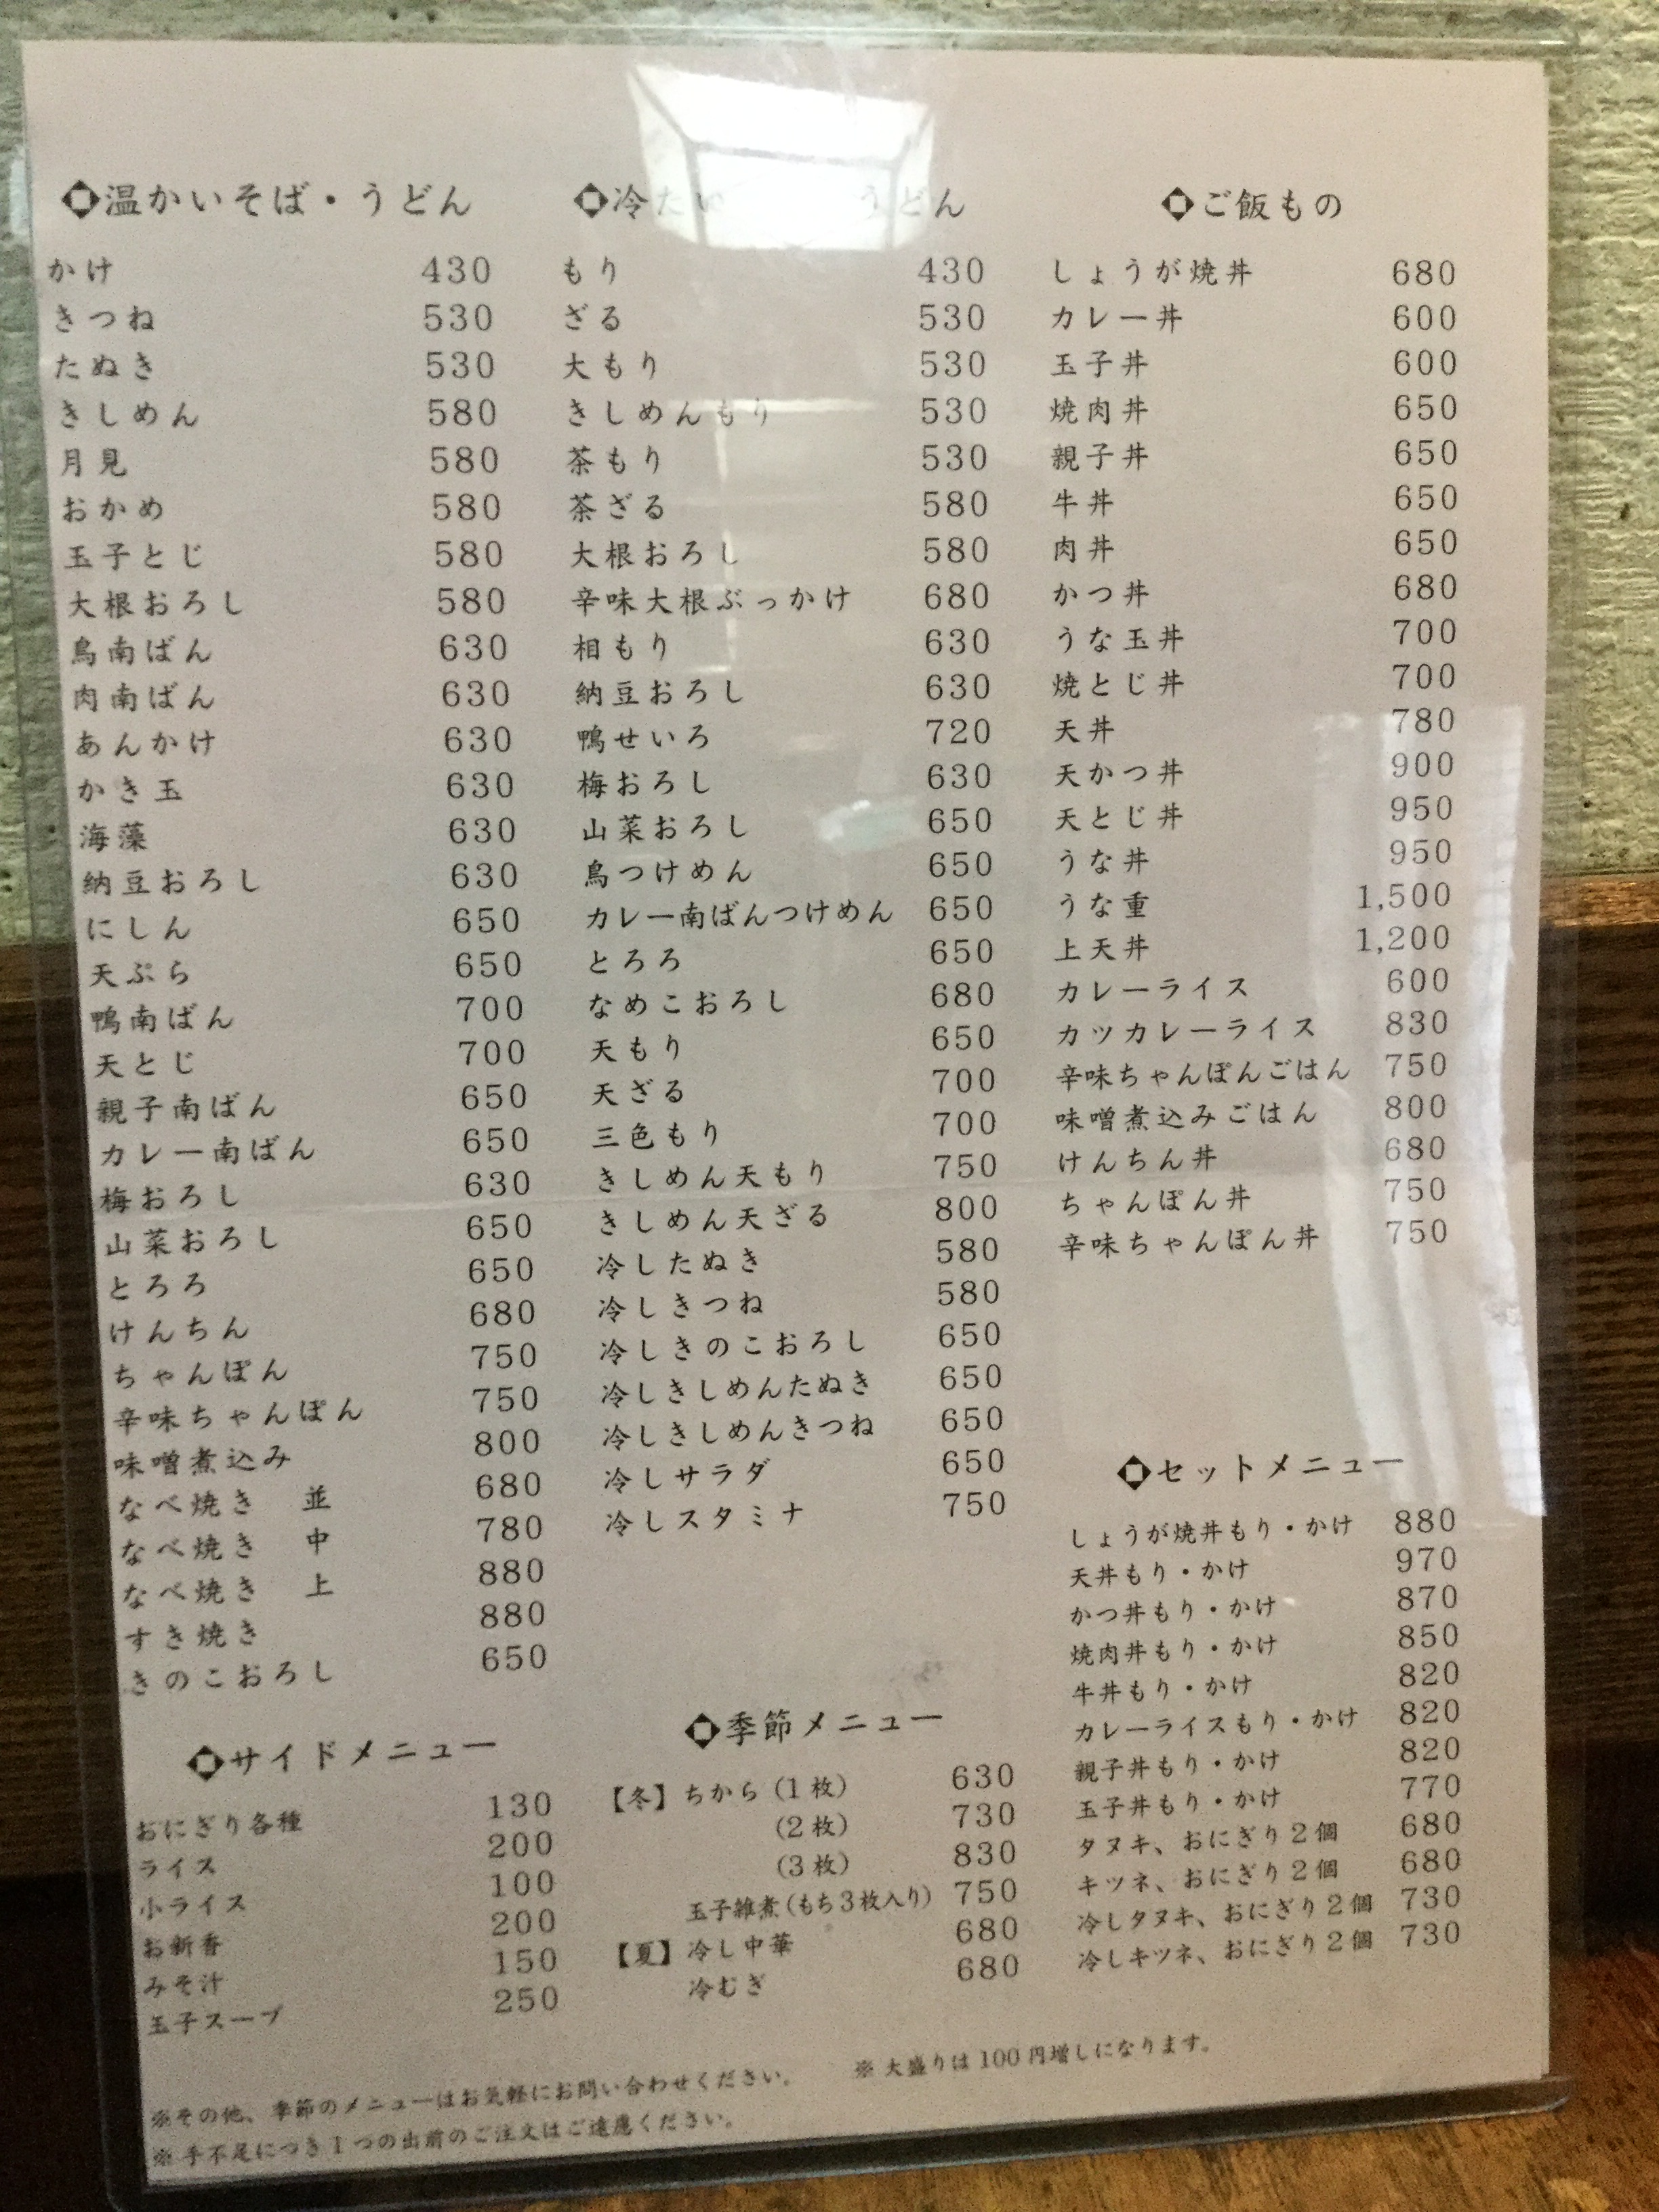 ◆温かいそば・うどん
かけ 430
きつね 530
たぬき 530
きしめん 580
月見 580
おかめ 580
玉子とじ 580
大根おろし 580
鳥南ばん 630
肉南ばん 630
あんかけ 630
かき玉 630
海藻 630
納豆おろし 630
にしん 650
天ぷら 650
鴨南ばん 700
天とじ 700
親子南ばん 650
カレー南ばん 650
梅おろし 630
山菜おろし 650
とろろ 650
けんちん 680
ちゃんぽん 750
辛味ちゃんぽん 750
味噌煮込み 800
なべ焼き 並 680
なべ焼き 中 780
なべ焼き 上 880
すき焼き 880
きのこおろし 650
◆サイドメニュー
おにぎり各種 130
ライス 200
小ライス 100
お新香 200
みそ汁 150
玉子スープ 250
◆冷たい うどん
もり 430
ざる 530
大もり 530
きしめんもり 530
茶もり 530
茶ざる 580
大根おろし 580
辛味大根ぶっかけ 680
相もり 630
納豆おろし 630
鴨せいろ 720
梅おろし 630
山菜おろし 650
鳥つけめん 650
カレー南ばんつけめん 650
とろろ 650
なめこおろし 680
天もり 650
天ざる 700
三色もり 700
きしめん天もり 750
きしめん天ざる 800
冷したぬき 580
冷しきつね 580
冷しきのこおろし 650
冷しきしめんたぬき 650
冷しきしめんきつね 650
冷しサラダ 650
冷しスタミナ 750
◆季節メニュー
【冬】ちから(1枚) 630
(2枚) 730
(3枚) 830
玉子雑煮(もち3枚入り) 750
【夏】冷し中華 680
冷むぎ 680
◆ご飯もの
しょうが焼丼 680
カレー丼 600
玉子丼 600
焼肉丼 650
親子丼 650
牛丼 650
肉丼 650
かつ丼 680
うな玉丼 700
焼とじ丼 700
天丼 780
天かつ丼 900
天とじ丼 950
うな丼 950
うな重 1,500
上天丼 1,200
カレーライス 600
カツカレーライス 830
辛味ちゃんぽんごはん 750
味噌煮込みごはん 800
けんちん丼 680
ちゃんぽん丼 750
辛味ちゃんぽん丼 750
◆セットメニュー
しょうが焼丼もり・かけ 880
天丼もり・かけ 970
かつ丼もり・かけ 870
焼肉丼もり・かけ 850
牛丼もり・かけ 820
カレーライスもり・かけ 820
親子丼もり・かけ 820
玉子丼もり・かけ 770
タヌキ、おにぎり2個 680
キツネ、おにぎり2個 680
冷しタヌキ、おにぎり2個 730
冷しキツネ、おにぎり2個 730
※その他、季節のメニューはお気軽にお問い合わせください。 ※大盛りは100円増しになります。
※手不足につき1つの出前のご注文はご遠慮ください。